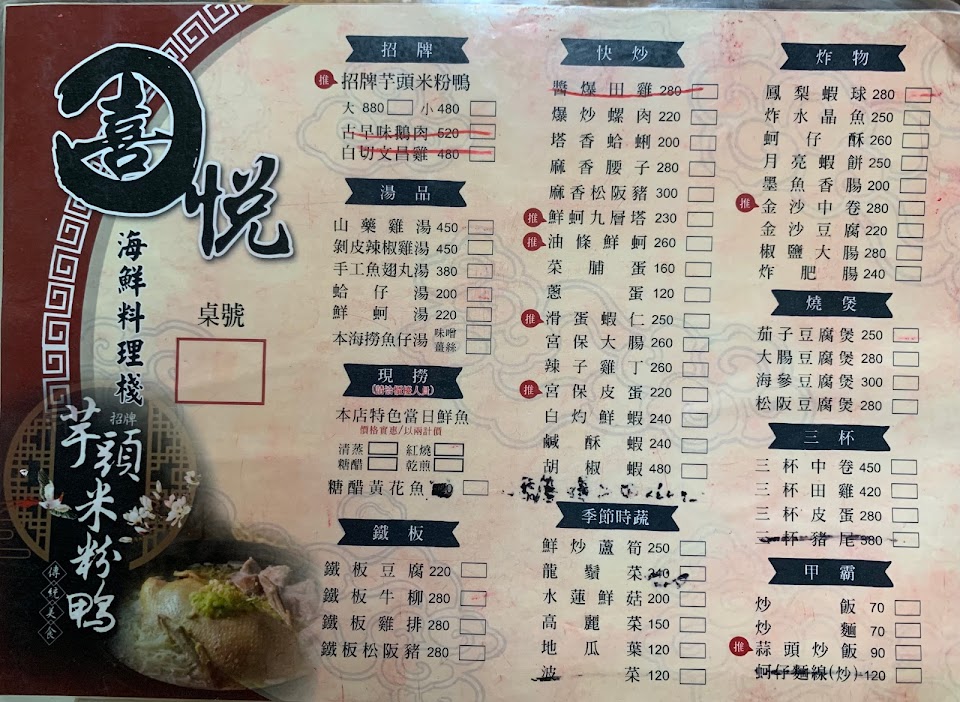 喜悅
海鮮料理棧
招牌
芋頭米粉鴨
傳統美食
桌號
招牌
推 招牌芋頭米粉鴨
大 880 小 480
古早味鵝肉 520
白切文昌雞 480
湯品
山藥雞湯 450
剝皮辣椒雞湯 450
手工魚翅丸湯 380
蛤仔湯 200
鮮蚵湯 220
本海撈魚仔湯 味噌 薑絲
現撈
(請洽櫃檯人員)
本店特色當日鮮魚
價格實惠/以兩計價
清蒸 紅燒
糖醋 乾煎
糖醋黃花魚
鐵板
鐵板豆腐 220
鐵板牛柳 280
鐵板雞排 280
鐵板松阪豬 280
快炒
醬爆田雞 280
爆炒螺肉 220
塔香蛤蜊 200
麻香腰子 280
麻香松阪豬 300
推 鮮蚵九層塔 230
推 油條鮮蚵 260
菜脯蛋 160
蔥蛋 120
推 滑蛋蝦仁 250
宮保大腸 260
辣子雞丁 260
推 宮保皮蛋 220
白灼鮮蝦 240
鹹酥蝦 240
胡椒蝦 480
季節時蔬
鮮炒蘆筍 250
龍鬚菜 240
水蓮鮮菇 200
高麗菜 150
地瓜葉 120
波菜 120
炸物
鳳梨蝦球 280
炸水晶魚 250
蚵仔酥 260
月亮蝦餅 250
墨魚香腸 200
推 金沙中卷 280
金沙豆腐 220
椒鹽大腸 280
炸肥腸 240
燒煲
茄子豆腐煲 250
大腸豆腐煲 280
海參豆腐煲 300
松阪豆腐煲 280
三杯
三杯中卷 450
三杯田雞 420
三杯皮蛋 280
三杯豬尾 380
甲霸
炒飯 70
炒麵 70
推 蒜頭炒飯 90
蚵仔麵線(炒) 120